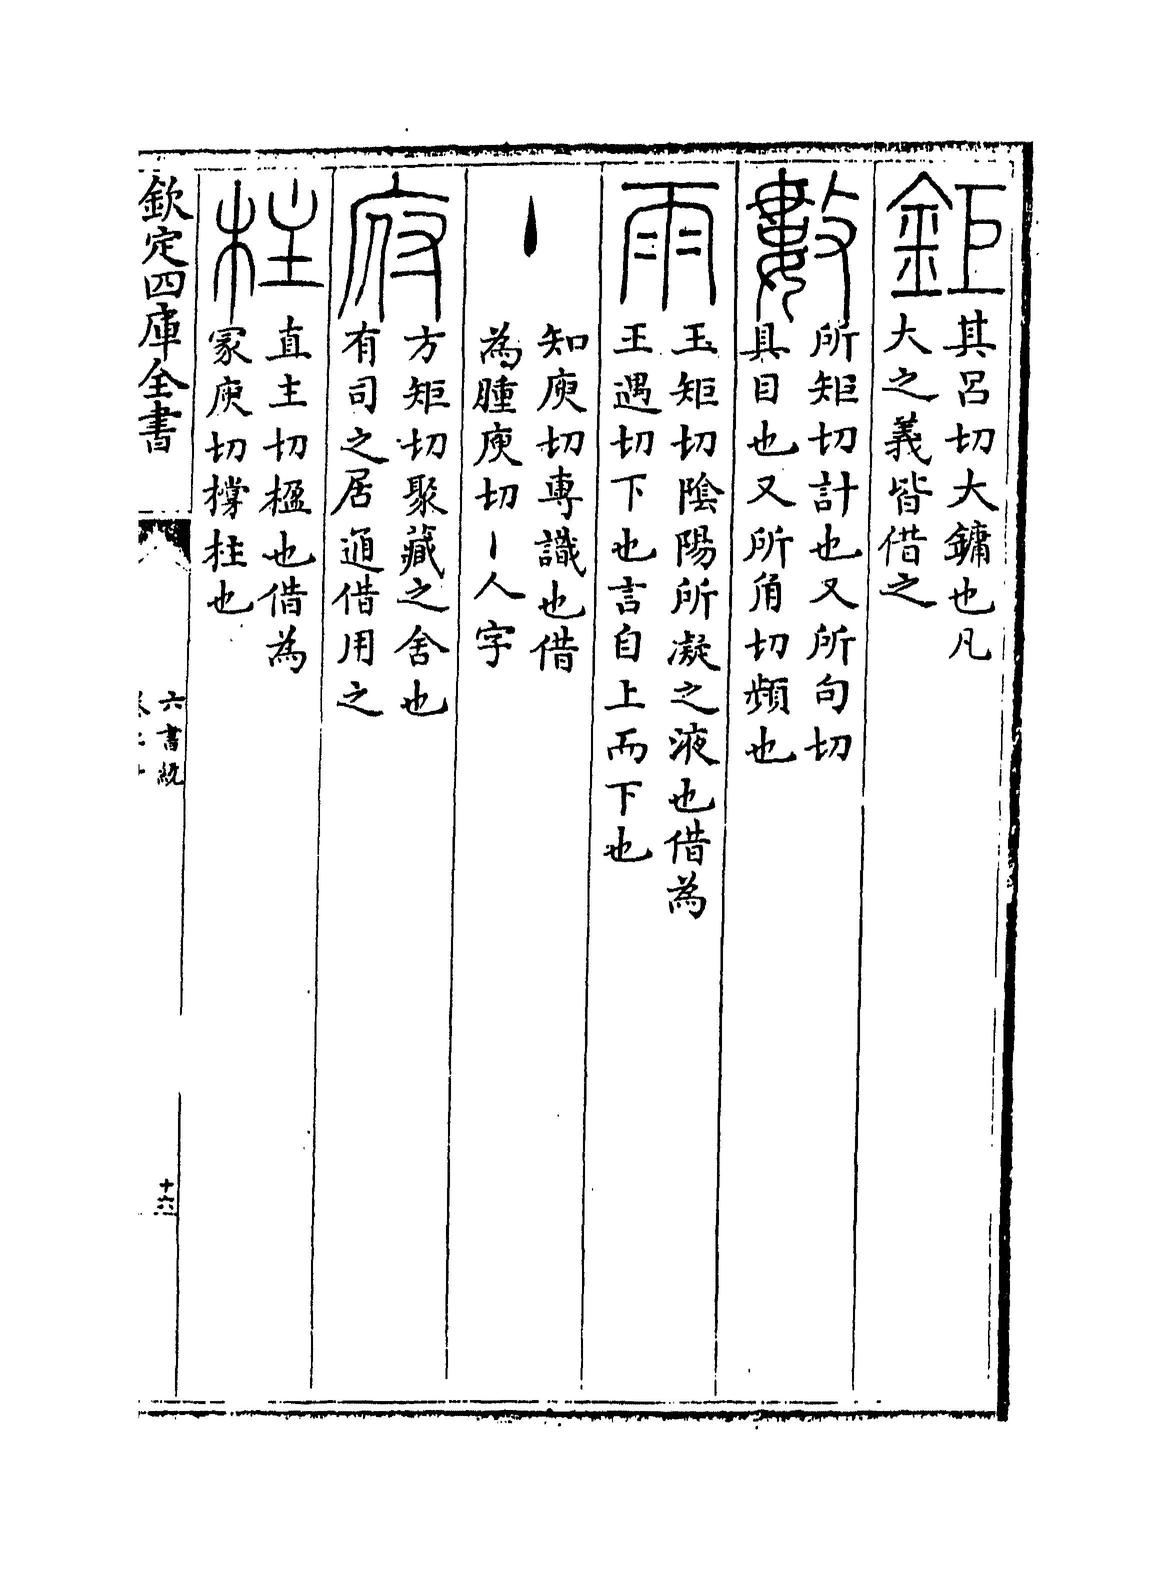 鉅
其呂切大鏞也凡
大之義皆借之
數
所矩切計也又所句切
具目也又所角切頻也
雨
玉矩切陰陽所凝之液也借為
王遇切下也言自上而下也
丶
知庾切專識也借
為腫庾切丶人字
府
方矩切聚藏之舍也
有司之居通借用之
柱
直主切楹也借為
冢庾切撐柱也
欽定四庫全書
六書統
十六